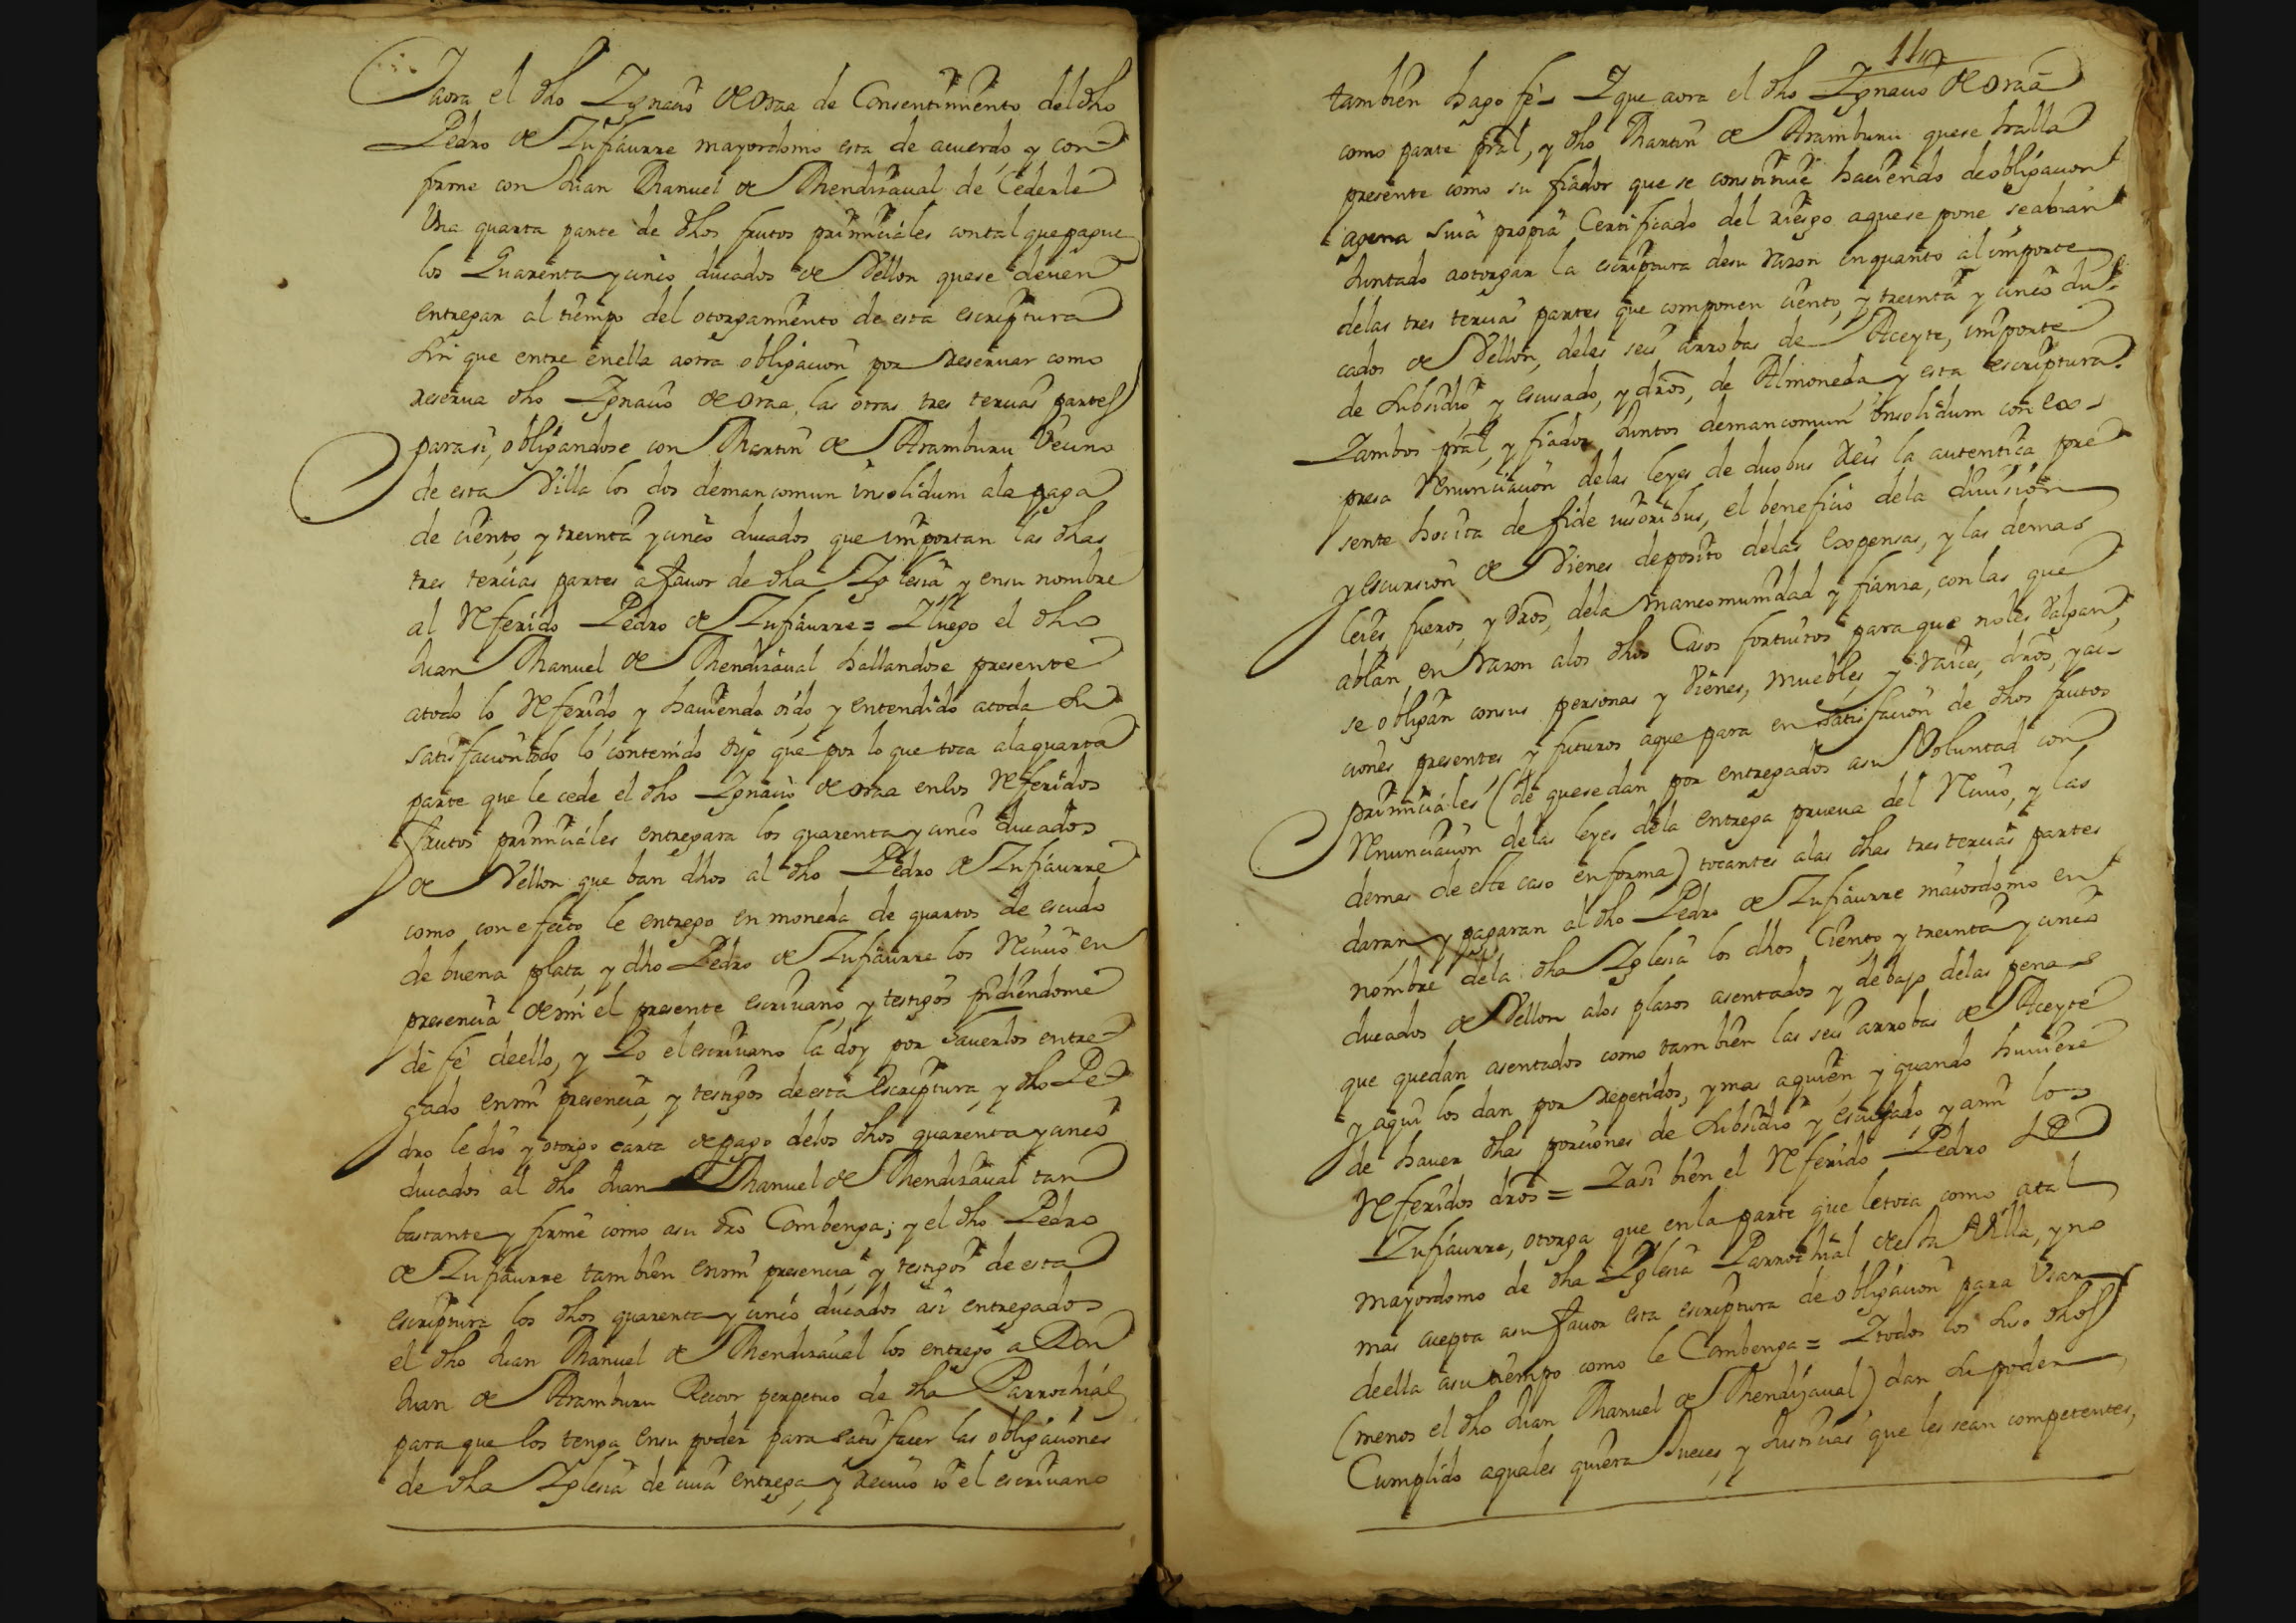 Yaora el dho Ygnacio de oraa de Consentimiento del dho
Pedro de Zufiaurre mayordomo esta de acuerdo, y con=
forme con Juan Manuel de Mendizaual de Cederle
Una quarta parte de dhos frutos primiciales contal que pague
los Quarenta y cinco ducados de Vellon quese deuen
entregar al tiempo del otorgamiento de esta escriptura
sin que entre enella aotra obligacion por Reseruar como
reserua dho Ygnacio de oraa, las otras tres tercias partes
parasi, obligandose con Martin de Aramburu Vecino
de esta Villa los dos demancomun insolidum ala paga
de ciento, y treinta y cinco ducados que importan las dhas
tres tercias partes a fauor de dha Yglesia y ensu nombre
al Referido Pedro de Zufiaurre = Yluego el dho
Juan Manuel de Mendizaual hallandose presente
atodo lo Referido y hauiendo oido, y entendido atoda su
satisfacion todo lo contenido dijo que por lo que toca alaquarta
parte que le cede el dho Ygnacio de oraa enlos Referidos
frutos primiciales entregara los quarenta y cinco ducados
de Vellon que ban dhos al dho Pedro de Zufiaurre
como con efecto le entrego en moneda de quartos de escudo
de buena plata, y dho Pedro de Zufiaurre los Reciuio en
presencia de mi el presente escriuano, y testigos pidiendome
de fe deello, y Yo el escriuano la doy por hauerlos entre=
gado enmi presencia, y testigos de esta Escriptura, y dho Pe=
dro le dio y otorgo carta de pago delos dhos quarenta y cinco
ducados al dho Juan Manuel de Mendizaual tan
bastante y firme como asu dro Combenga; y el dho Pedro
de Zufiaurre tambien enmi presencia y testigos de esta
escriptura los dhos quarenta y cinco ducados asi entregados
el dho Juan Manuel de Mendizaual los entrego a Don
Juan de Aramburu Rector perpetuo de dha Parrochial
para que los tenga ensu poder para satisfacer las obligaciones
de dha Yglesia de cuia entrega, y Reciuo io el escriuano
tambien hago fe= Yque aora el dho Ygnacio de oraa
como parte pral, y dho Martin de Aramburu quese halla
presente como su fiador que se constituie haciendo deobligacion
agena suia propia Certificado del riesgo aquese pone seabian
Juntado aotorgar la escriptura desu razon enquanto alimporte
delas tres tercias partes que componen ciento, y treinta y cinco du=
cados de Vellon, delas seis arrobas de Aceyte, importe
de subsidio y escusado, y dros, de Almoneda, y esta escriptura.
Yambos pral, y fiador Juntos demancomun insolidum con ex=
presa Renunciacion delas leyes de duobus Reis la autentica pre
sente hocita de fide iusoribus, el beneficio dela diuision
y escursion de Vienes deposito delas Expensas, y las demas
leies fueros, y dros, dela mancomunidad y fianza, con las que
ablan en razon alos dhos Casos fortuitos para que noles Valgan,
se obligan consus personas y Vienes, muebles, y raices, dros, y ac=
ciones presentes, y futuros aque para en satisfacion de dhos frutos
primiciales (de quesedan por entregados asu Voluntad con
Renunciacion delas leyes dela entrega prueua del Reciuo, y las
demas de este caso en forma) tocantes alas dhas tres tercias partes
daran y pagaran al dho Pedro de Zufiaurre maiordomo en
nombre dela dha Yglesia los dhos Ciento, y treinta y cinco
ducados de Vellon alos plazos asentados y debajo delas penas
que quedan asentados como tambien las seis arrobas de Aceyte
y aqui los dan por Repetidos, y mas aquien, y quando huuiere
de hauer dhas porciones de subsidio y escusado, y ami los
Referidos dros = Yasi bien el Referido Pedro de
Zufiaurre, otorga que enla parte que letoca como atal
mayordomo de dha Yglesia Parrochial de sta Villa, y no
mas acepta asu fauor esta escriptura de obligacion para Usar
deella asu tiempo como le Combenga = Ytodos los suso dhos
(menos el dho Juan Manuel de Mendizaual) dan su poder
Cumplido aquales quiera Jueces, y Justicias que les sean competentes,